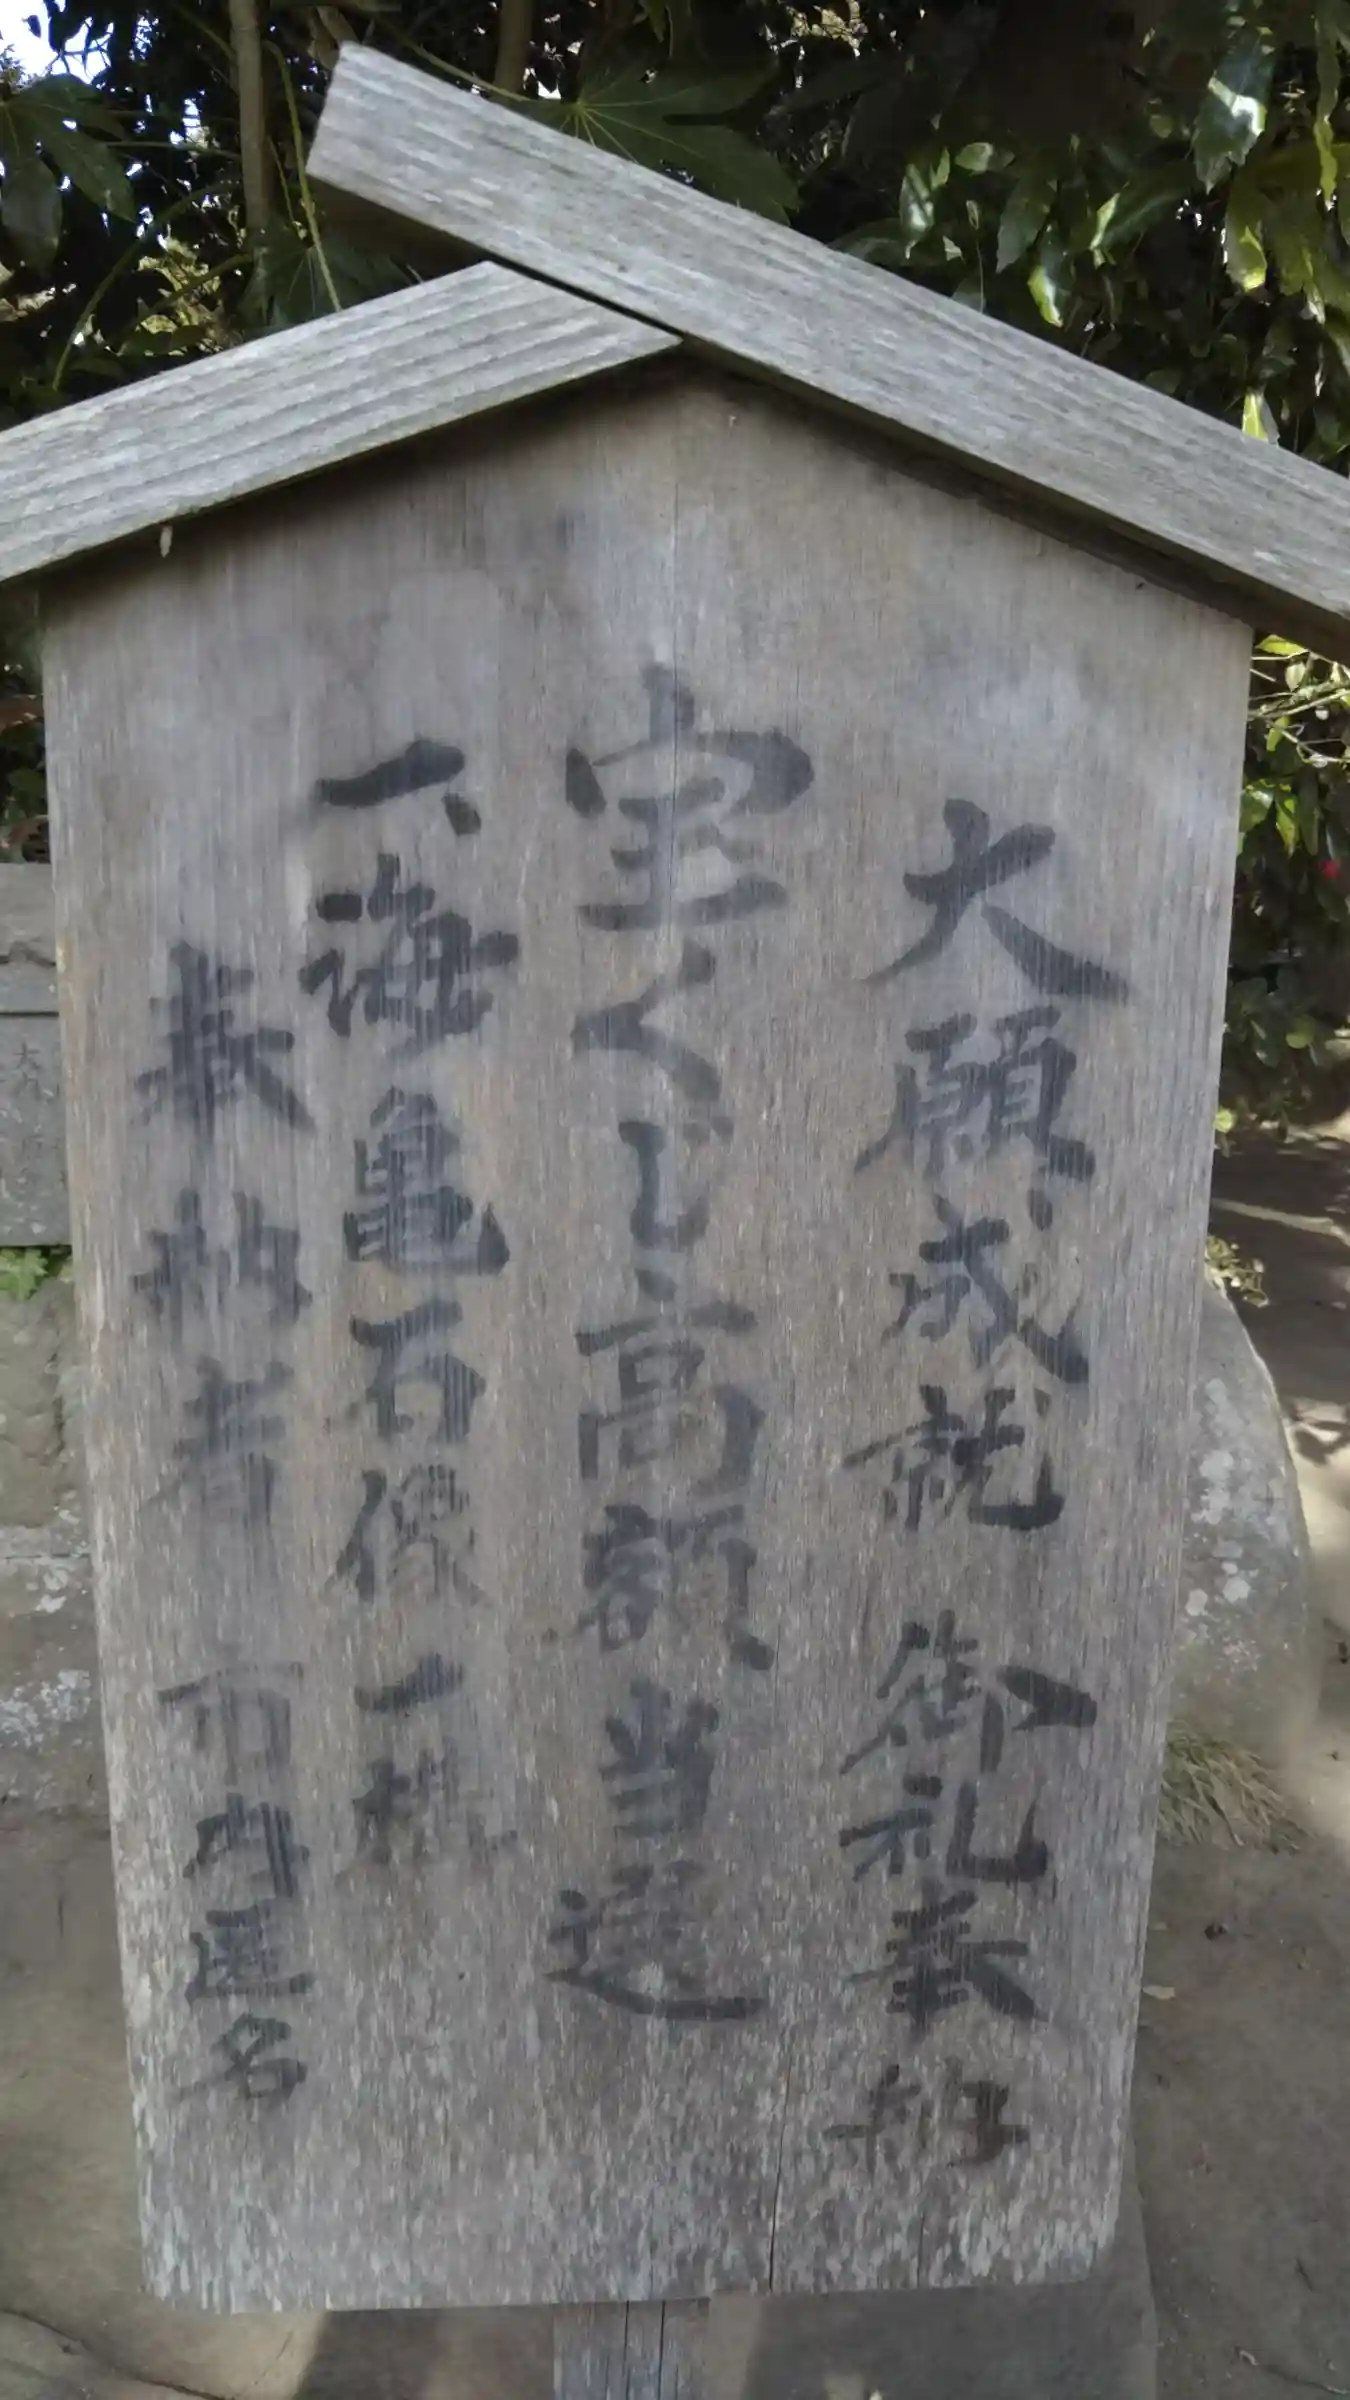 大願成就 御礼奉納
宝くじ高額当選
一、海亀石像一
奉納者 市内匿名